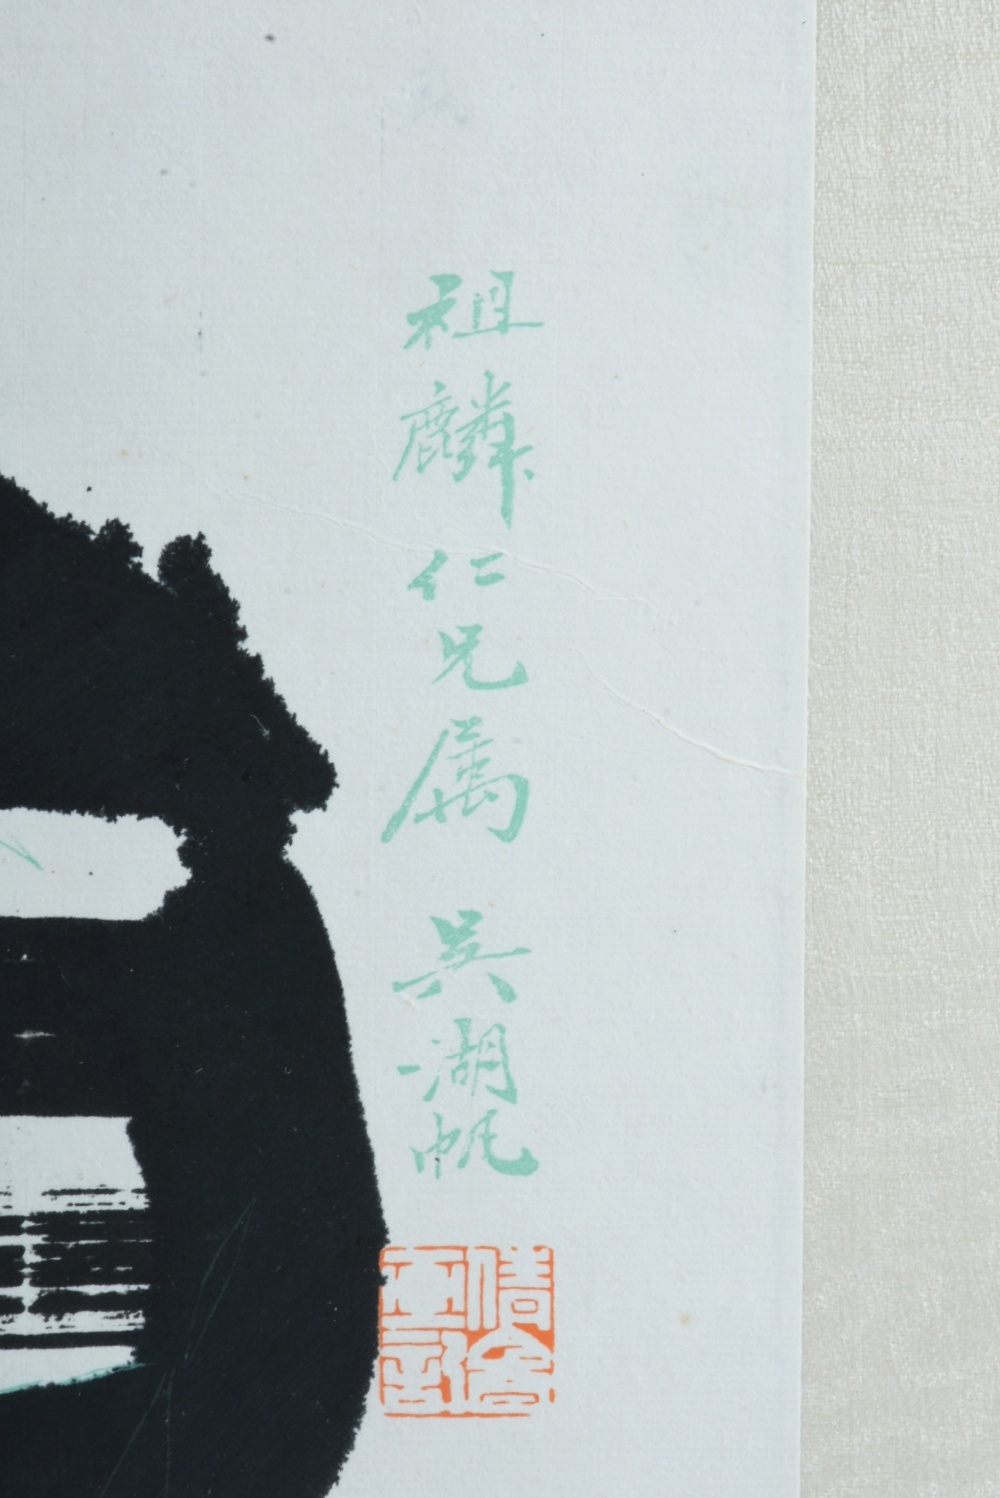 祖麟仁兄属 吳湖帆
倩盦
畫記